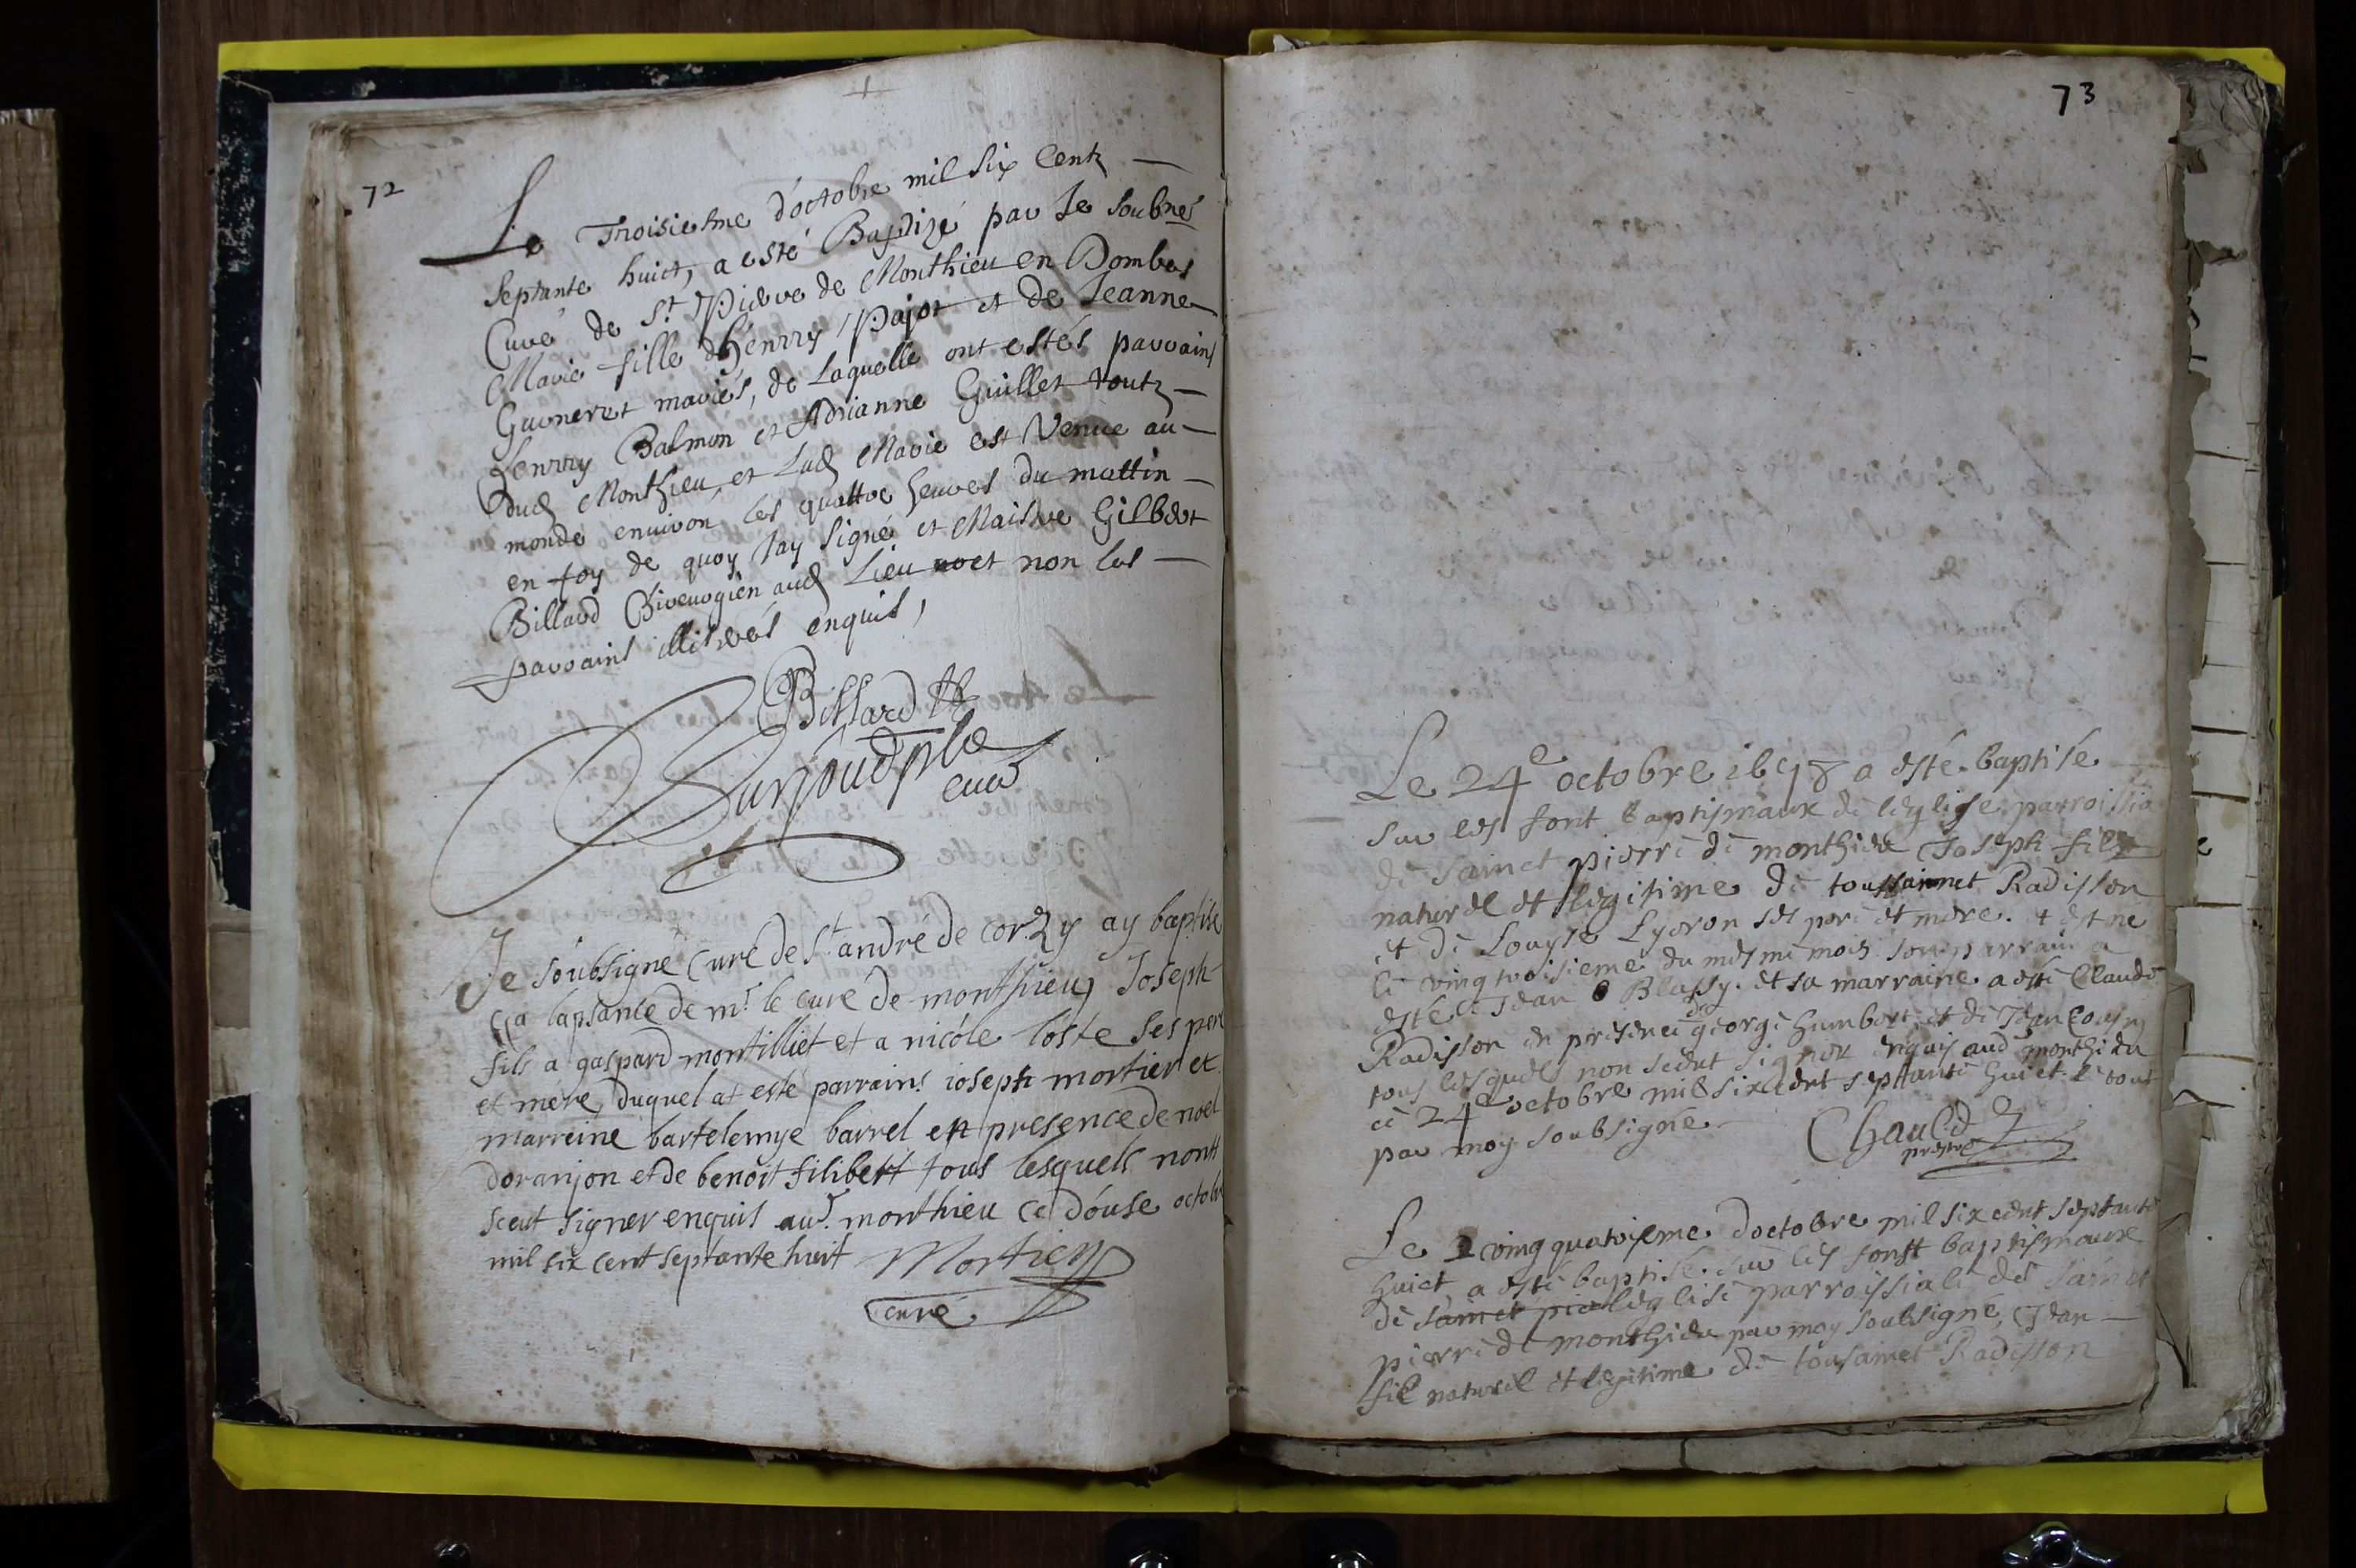 72
Le Troisiesme d'octobre mil six Centz
Septante huict, a esté Baptizé par Je soubnes
Curé de St Pierre de Monthieu en Dombes
Marie fille d'henrry Pajot et de Jeanne
Guoneret mariés, de Laquelle ont estés parrains
henrry Balmon et Adrianne Guillet toutz
dud Monthieu, et Lad Marie est Venue au
monde enuiron les quattre heures du mattin
en foy de quoy Jay signé et Maistre Gilbert
Billard Chirurgien aud Lieu et non les
parrains illitrés enquis,
Billard
curé
Je soubsigné Curé de St andré de corzy ay baptisé
a la psance de mr le curé de monthieu, Joseph
fils a gaspard montilliet et a nicóle loste ses pere
et mere, duquel at esté parrains ioseph mortier et
marreine bartelemye barrel en presence de noel
doranjon et de benoit filibert tous lesquels nontt
sceut signer enquis aud. monthieu ce douse octobre
mil six cent septante huit Mortier
curé
73
Le 24e octobre 1678 a esté baptisé
sur les font baptismaux de leglise parroissia
de sainct pierre de monthieu Joseph filz
naturel et legitime de toussainct Radisson
et de Louyse Lyoron ses pere et mere. et est né
le vingtroisieme du mesme mois son parrain a
esté Jean Blassy. et sa marraine a esté Claude
Radisson en presence de george humbert et de Jean Cousin
tous lesquels non sceut signer enquis aud monthieu
ce 24e octobre mil six cent septante huict le tout
par moy soubsigné
prestre
Le vingquatrieme doctobre mil six cent septante
huict a esté baptisé sur les fonst baptismaux
de sainct pie leglise parroissiale de sainct
pierre de monthieu par moy soubsigné, Jean
fil naturel et legitime de tousainct Radisson